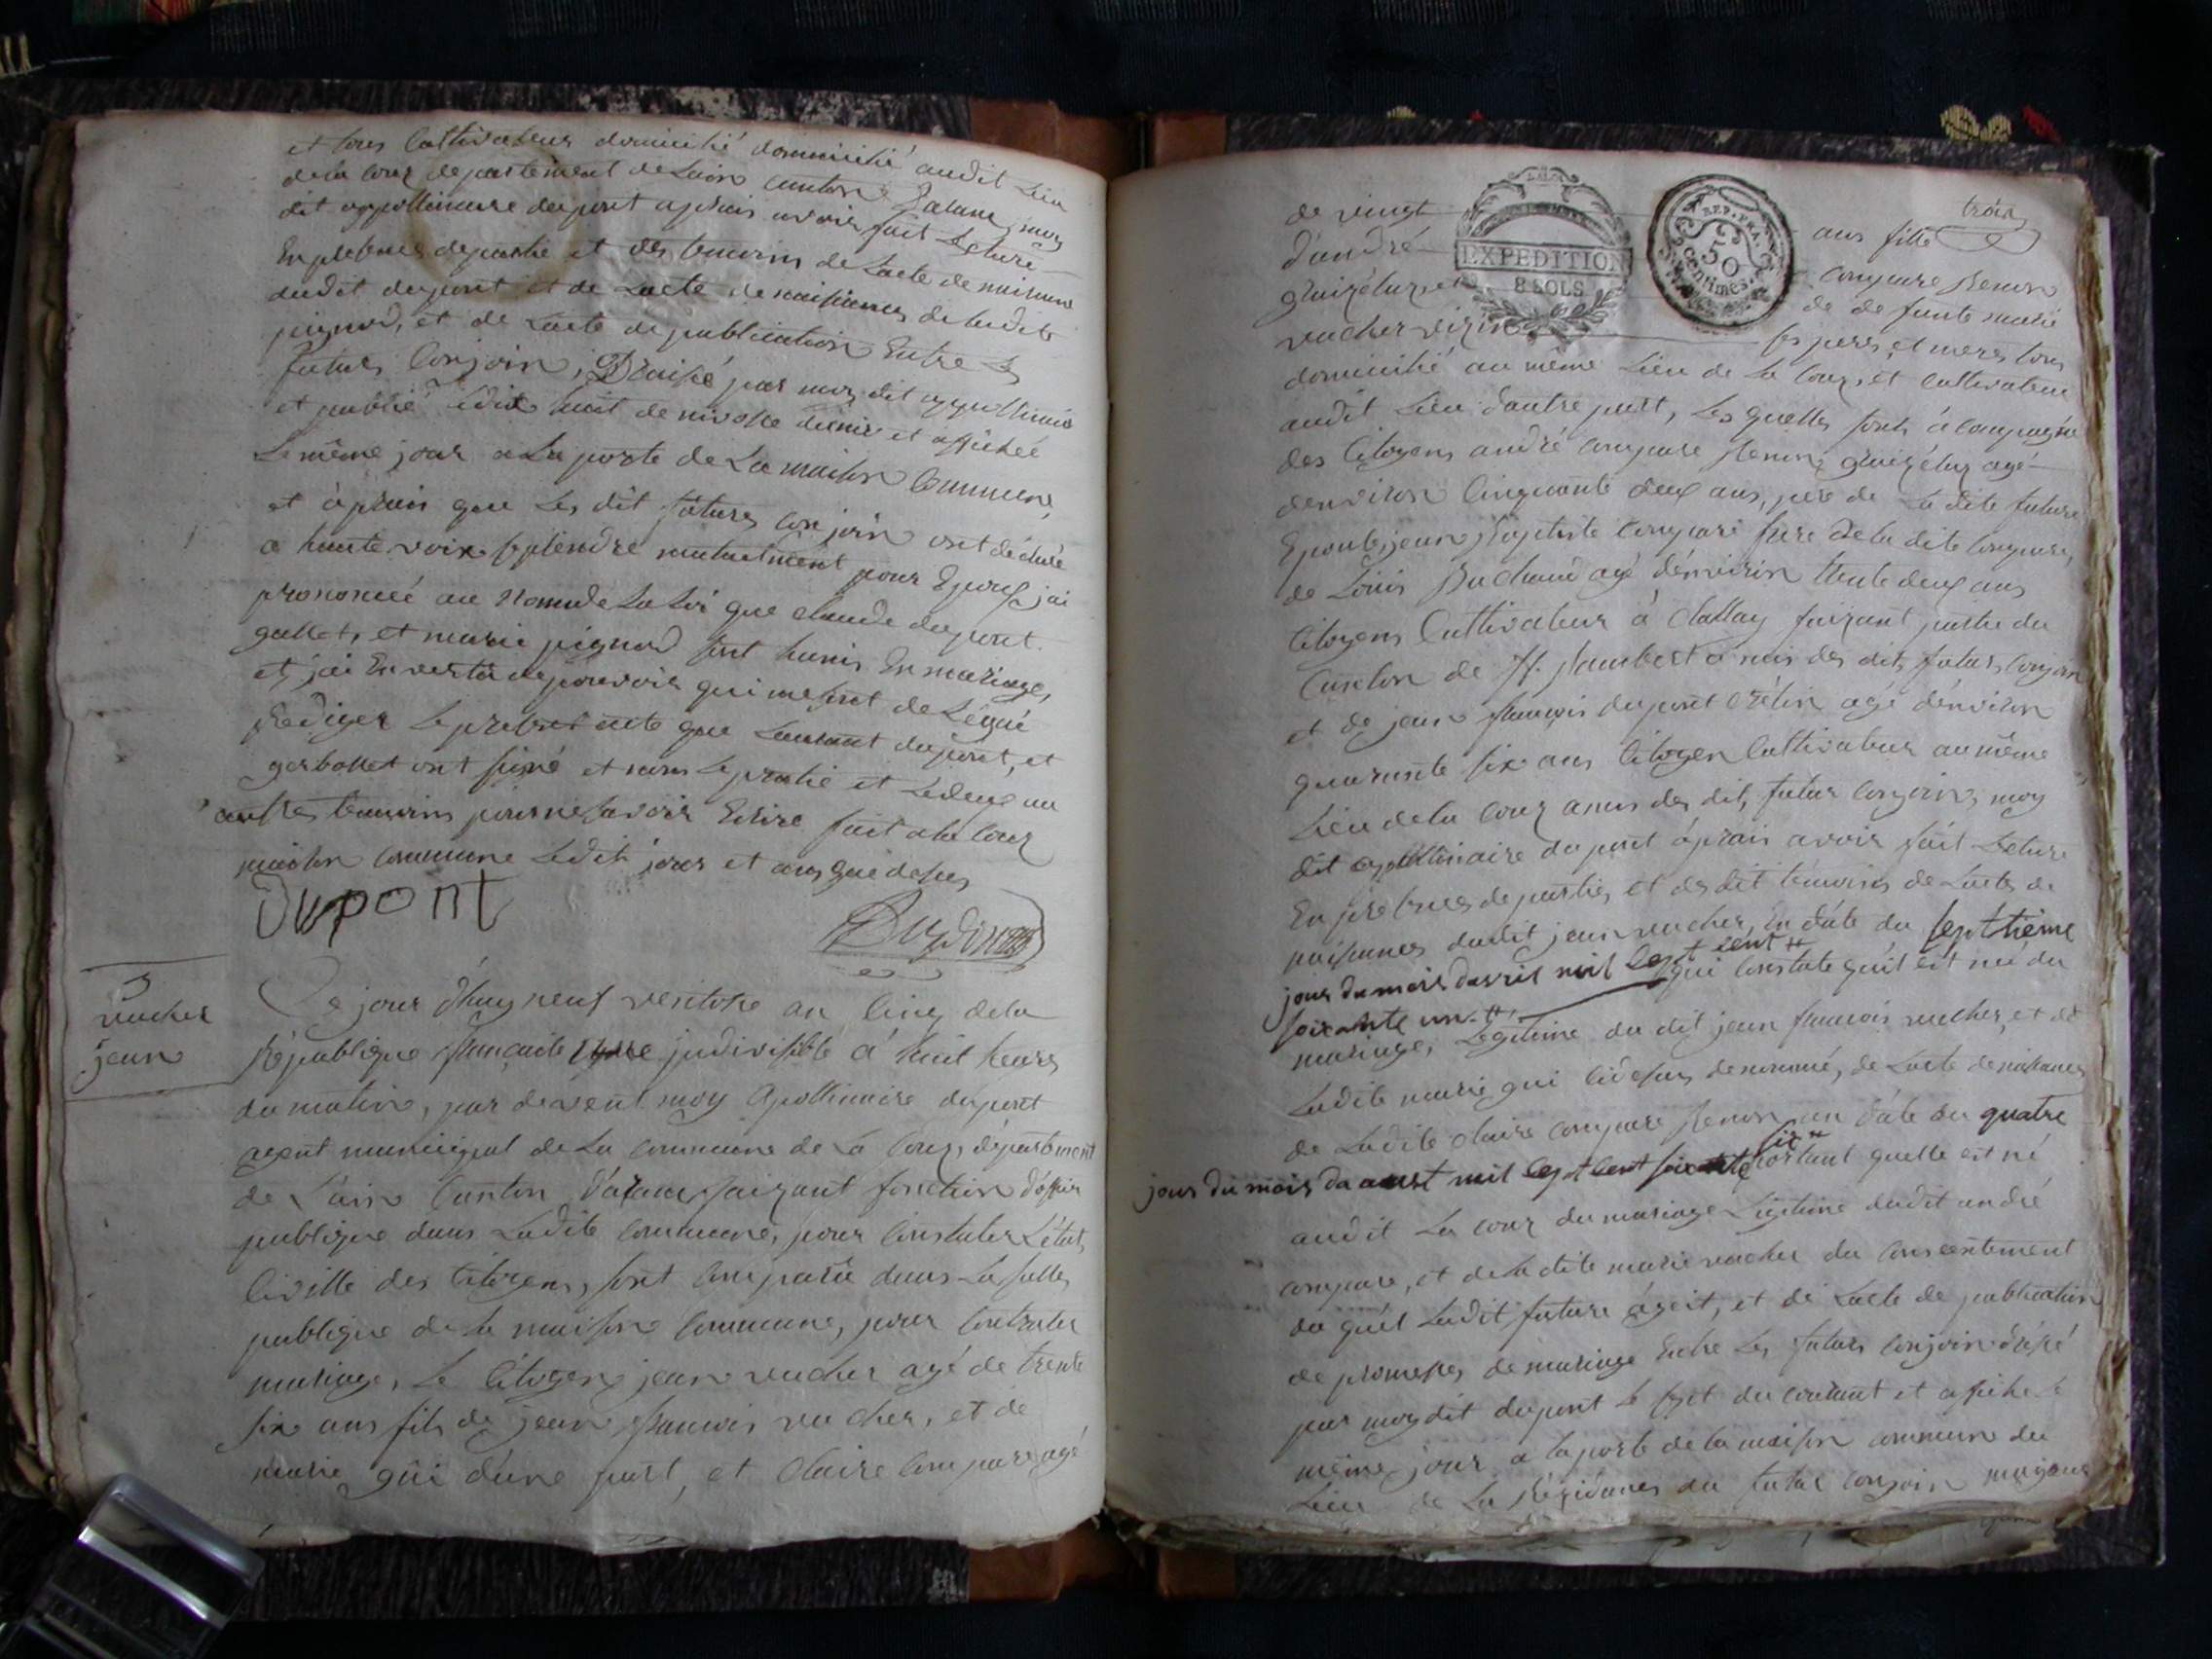 et tous Cultivateur domicilié domicilié audit Lieu
de la Cour departement de Lain canton moy
dit appollinaire dupont aprais avoir fait Lecture
En presence de partie et des temoins de Lacte de naissance
dudit dupont et de Lacte de naissances de ladite
pignod, et de Lacte de publication Entre Les
futurs Conjoin, par moy dit appollinaire
et publié Ledit huit de nivosse dernier et affichée
Le même jour a La porte de La maison Commune,
et àprais que Les dit futurs Conjoin ont déclaré
a haute voix prendre mutuelment pour Epoux, jai
prononcé au Nom de La Loi que claude dupont
gallet, et marie pignod sont hunis En mariage,
et jai En vertu de pouvoir qui me sont de Légué
Rediger Le present acte que Laurant dupont, et
gerbollet ont signé et nom Le partie et Le deux au
autres temoins pour ne savoir Ecrire fait a la Cour
maison commune Ledit jour et ans que dessus
Dupont
3
vucher
jean
Ce jour d'huy neuf ventose an Cinq de la
République française Une jndivisible à huit heures
du matin, par devent moy Apollinaire dupont
agent municipal de La commune de La Cour, département
de L'ain Canton faizant fonction d'offier
publique dans Ladite commune, pour Constater L'état
Civille des Citoyens, sont Comparu dans La salles
publique de la maison Commune, pour Contracter
mariage, Le Citoyen jean vucher agé de trente
six ans fils de jean francois vucher, et de
marie gui d'une part, et Claire Compare agé
trois
de vingt ans fille
EXPEDITION
8 SOLS
REP. FRA.
50
centimes.
d'andré compare Renon
et de de funte marie
vucher ses peres et meres tous
domicilié au même Lieu de La Cour, et Cultivateur
audit Lieu dautre part, Les quelles sont àcompagné
des Citoyens andré compare Renon agé
denviron Cinquante deux ans, pere de La dite future
Epouse, jean Baptiste Compare frere de la dite Compare,
de Louis agé denviron trente deux ans
Citoyens Cultivateur à faizant partie du
Canton de St. Rambert amis des dit futurs Conjoin
et de jean françois dupont agé denviron
quarante six ans Citoyen Cultivateur au même
Lieu de la Cour amis des dit futur Conjoin, moy
dit appollinaire dupont àprais avoir fait Lecture
En presences de parties et des dit témoins de Lactes de
naissances dudit jean vucher, En date du septtième
jour du mois davril mil sept cent
soixante un qui Constate quil est né du
mariage, Légitime du dit jean francois vucher, et de
Ladite marie gui Cidessus denommé, de Lacte de naissances
de Ladite Claire Compare Renon en date du quatre
jour du mois da aoust mil sept cent soixante six portant quelle est né
audit La Cour du mariage Légitime dudit andré
compare, et de la dite marie vucher du Consentement
du quél Ladit future àgeit, et de Lacte de publication
de promesses de mariage Entre Les futurs Conjoin
par moy dit dupont Le sept du courant et affiché le
même jour a la porte de la maison commune du
Lieu de La Rézidances du futur Conjoin